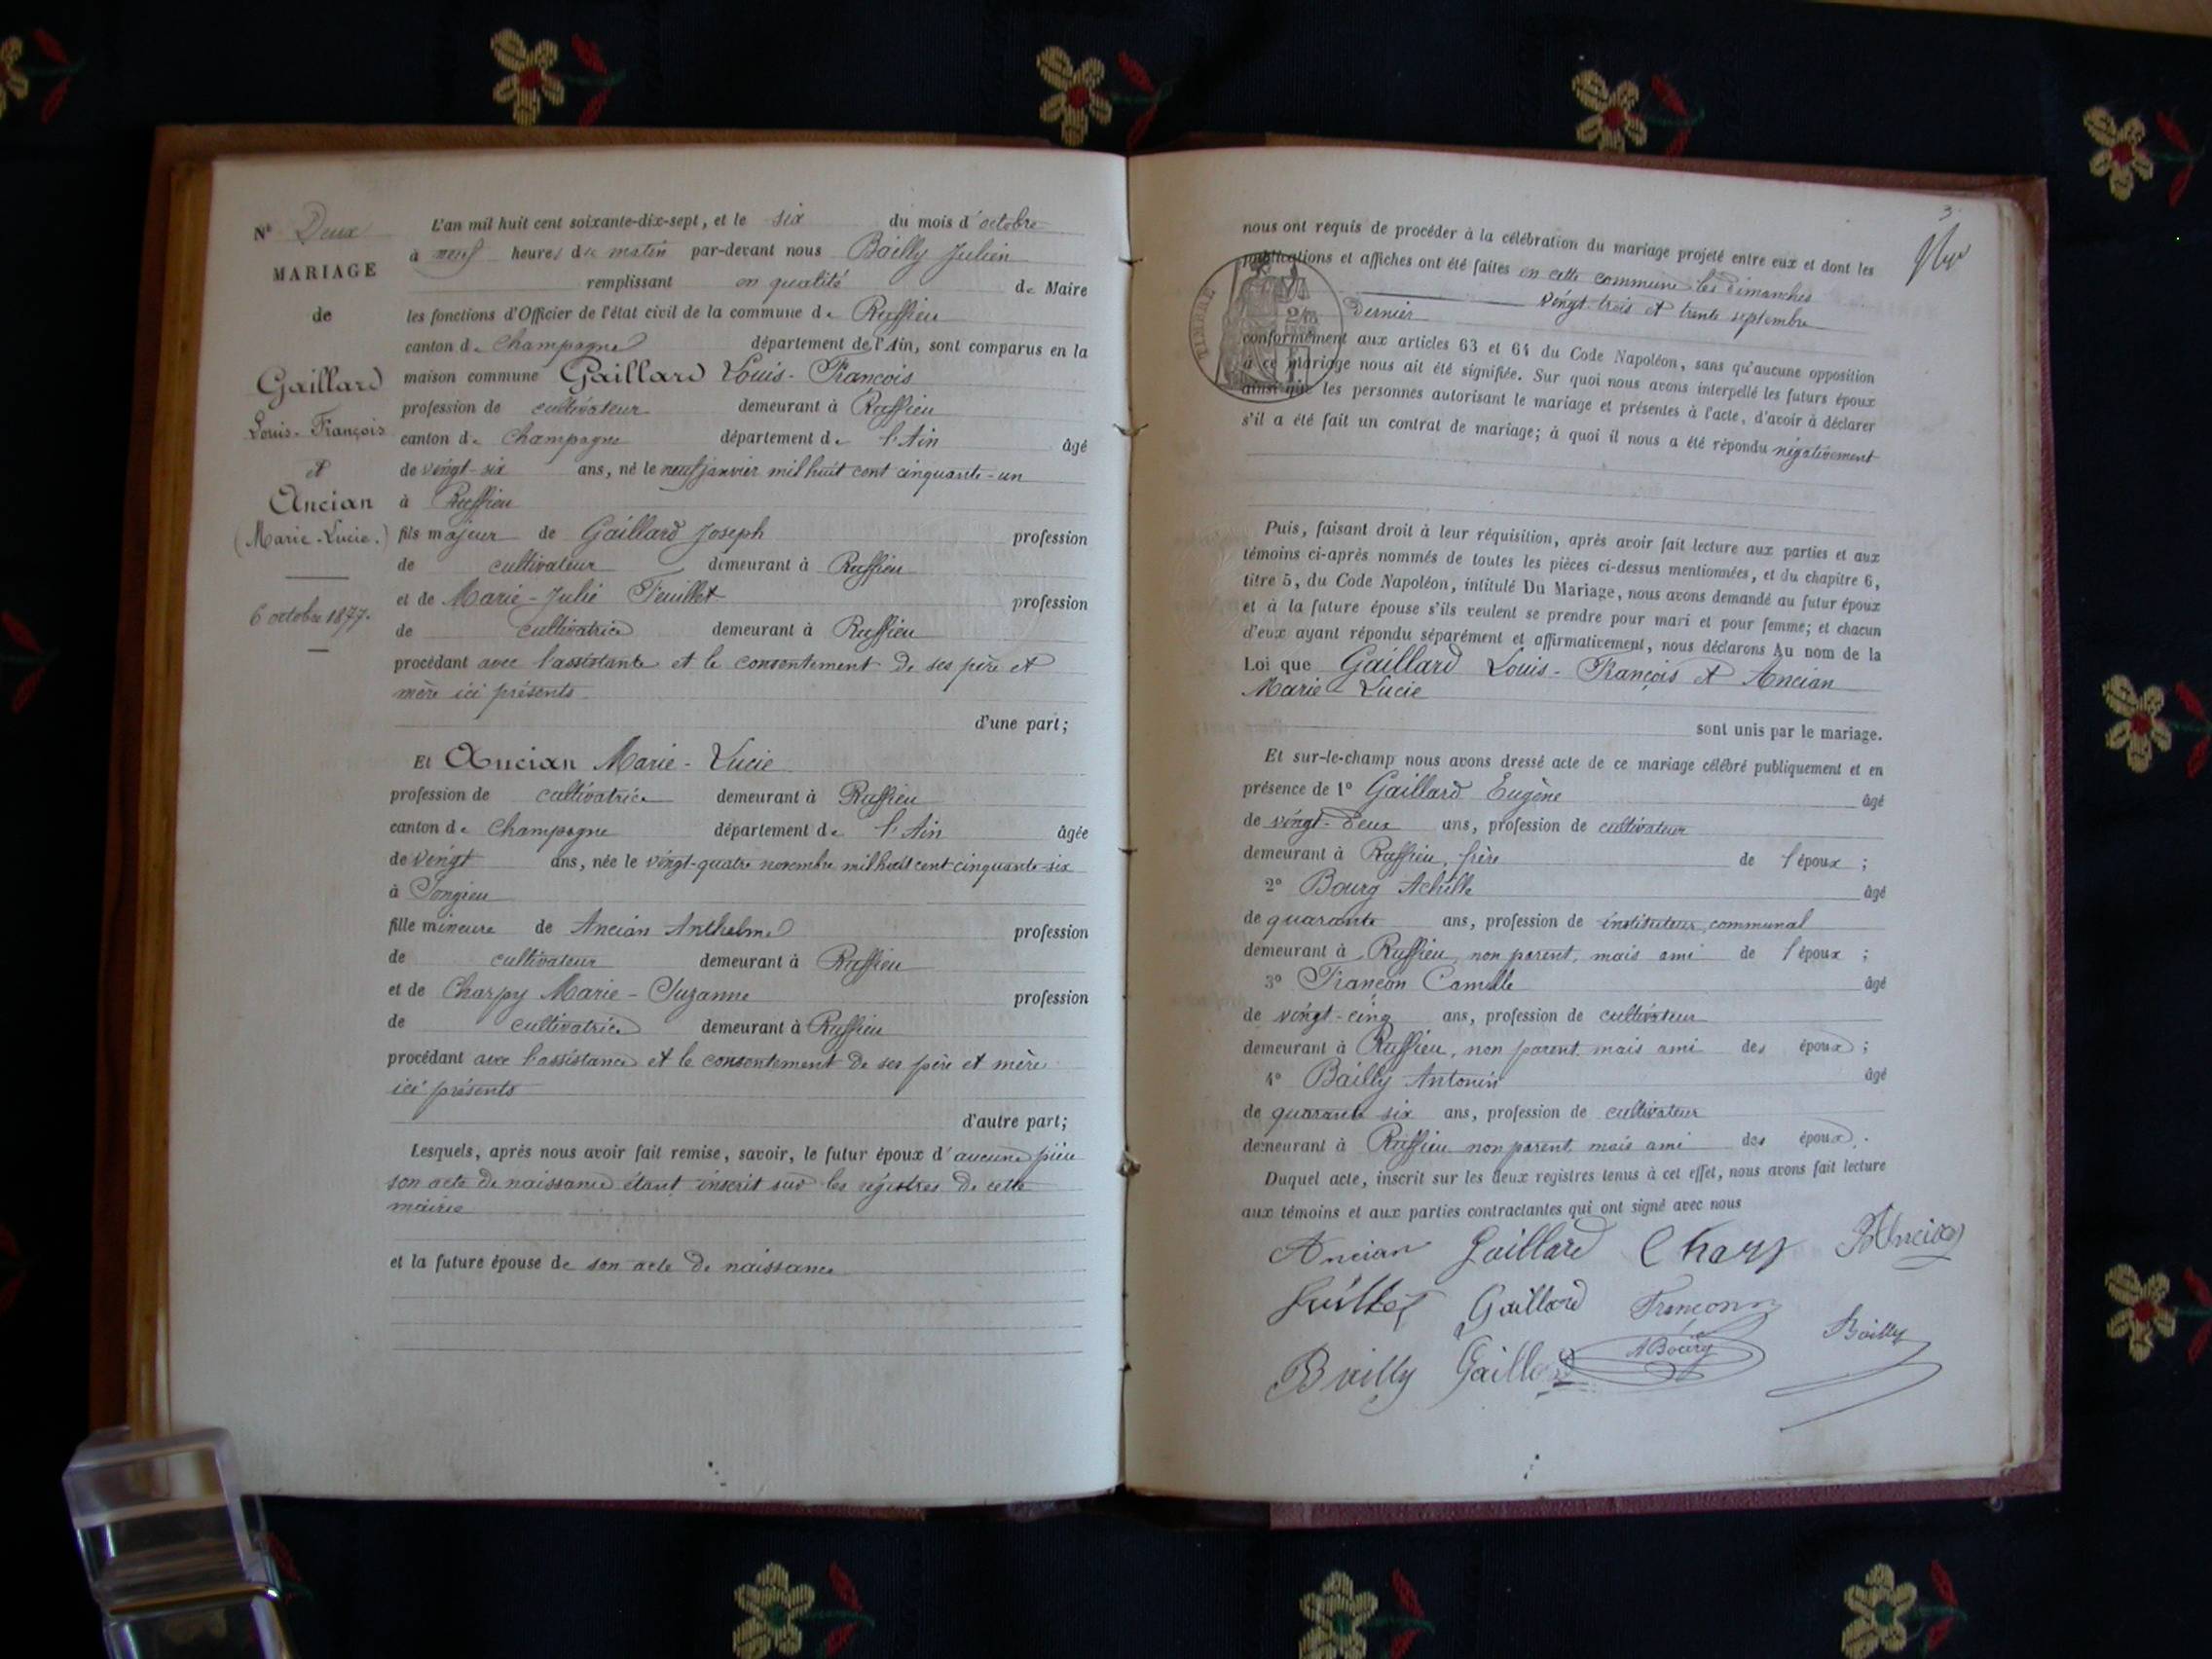 Nº Deux
MARIAGE
de
Gaillard
Louis-François
et
Ancian
(Marie-Lucie.)
6 octobre 1877.
L'an mil huit cent soixante-dix-sept, et le six du mois d'octobre
à neuf heures du matin par-devant nous Bailly Julien
remplissant en qualité de Maire
les fonctions d'Officier de l'état civil de la commune de Ruffieu
canton de Champagne département de l'Ain, sont comparus en la
maison commune Gaillard Louis-François
profession de cultivateur demeurant à Ruffieu
canton de Champagne département de l'Ain âgé
de vingt-six ans, né le neuf janvier mil huit cent cinquante-un
à Ruffieu
fils majeur de Gaillard Joseph profession
de cultivateur demeurant à Ruffieu
et de Marie-Julie Feuillet profession
de cultivatrice demeurant à Ruffieu
procédant avec l'assistante et le consentement de ses père et
mère ici présents
d'une part;
Et Ancian Marie-Lucie
profession de cultivatrice demeurant à Ruffieu
canton de Champagne département de l'Ain âgée
de vingt ans, née le vingt-quatre novembre mil huit cent cinquante-six
à Songieu
fille mineure de Ancian Anthelme profession
de cultivateur demeurant à Ruffieu
et de Charpy Marie-Suzanne profession
de cultivatrice demeurant à Ruffieu
procédant avec l'assistance et le consentement de ses père et mère
ici présents
d'autre part;
Lesquels, après nous avoir fait remise, savoir, le futur époux d'aucune pièce
son acte de naissance étant inscrit sur les régistres de cette
mairie
et la future épouse de son acte de naissance
3
nous ont requis de procéder à la célébration du mariage projeté entre eux et dont les
publications et affiches ont été faites en cette commune les dimanches
vingt-trois et trente septembre
dernier
TIMBRE
conformément aux articles 63 et 64 du Code Napoléon, sans qu'aucune opposition
à ce mariage nous ait été signifiée. Sur quoi nous avons interpellé les futurs époux
ainsi que les personnes autorisant le mariage et présentes à l'acte, d'avoir à déclarer
s'il a été fait un contrat de mariage; à quoi il nous a été répondu négativement
Puis, faisant droit à leur réquisition, après avoir fait lecture aux parties et aux
témoins ci-après nommés de toutes les pièces ci-dessus mentionnées, et du chapitre 6,
titre 5, du Code Napoléon, intitulé Du Mariage, nous avons demandé au futur époux
et à la future épouse s'ils veulent se prendre pour mari et pour femme; et chacun
d'eux ayant répondu séparément et affirmativement, nous déclarons Au nom de la
Loi que Gaillard Louis-François et Ancian
Marie-Lucie
sont unis par le mariage.
Et sur-le-champ nous avons dressé acte de ce mariage célébré publiquement et en
présence de 1º Gaillard Eugène âgé
de vingt-deux ans, profession de cultivateur
demeurant à Ruffieu, frère de l'époux;
2º Bourg Achille âgé
de quarante ans, profession de instituteur communal
demeurant à Ruffieu, non parent, mais ami de l'époux;
3º Françon Camille âgé
de vingt-cinq ans, profession de cultivateur
demeurant à Ruffieu, non parent, mais ami des époux;
4º Bailly Antonin âgé
de quarante six ans, profession de cultivateur
demeurant à Ruffieu non parent, mais ami des époux.
Duquel acte, inscrit sur les deux registres tenus à cet effet, nous avons fait lecture
aux témoins et aux parties contractantes qui ont signé avec nous
Ancian Gaillard Charpy Ancian
Gaillard Françon
Bailly Gaillard ABourg Bailly